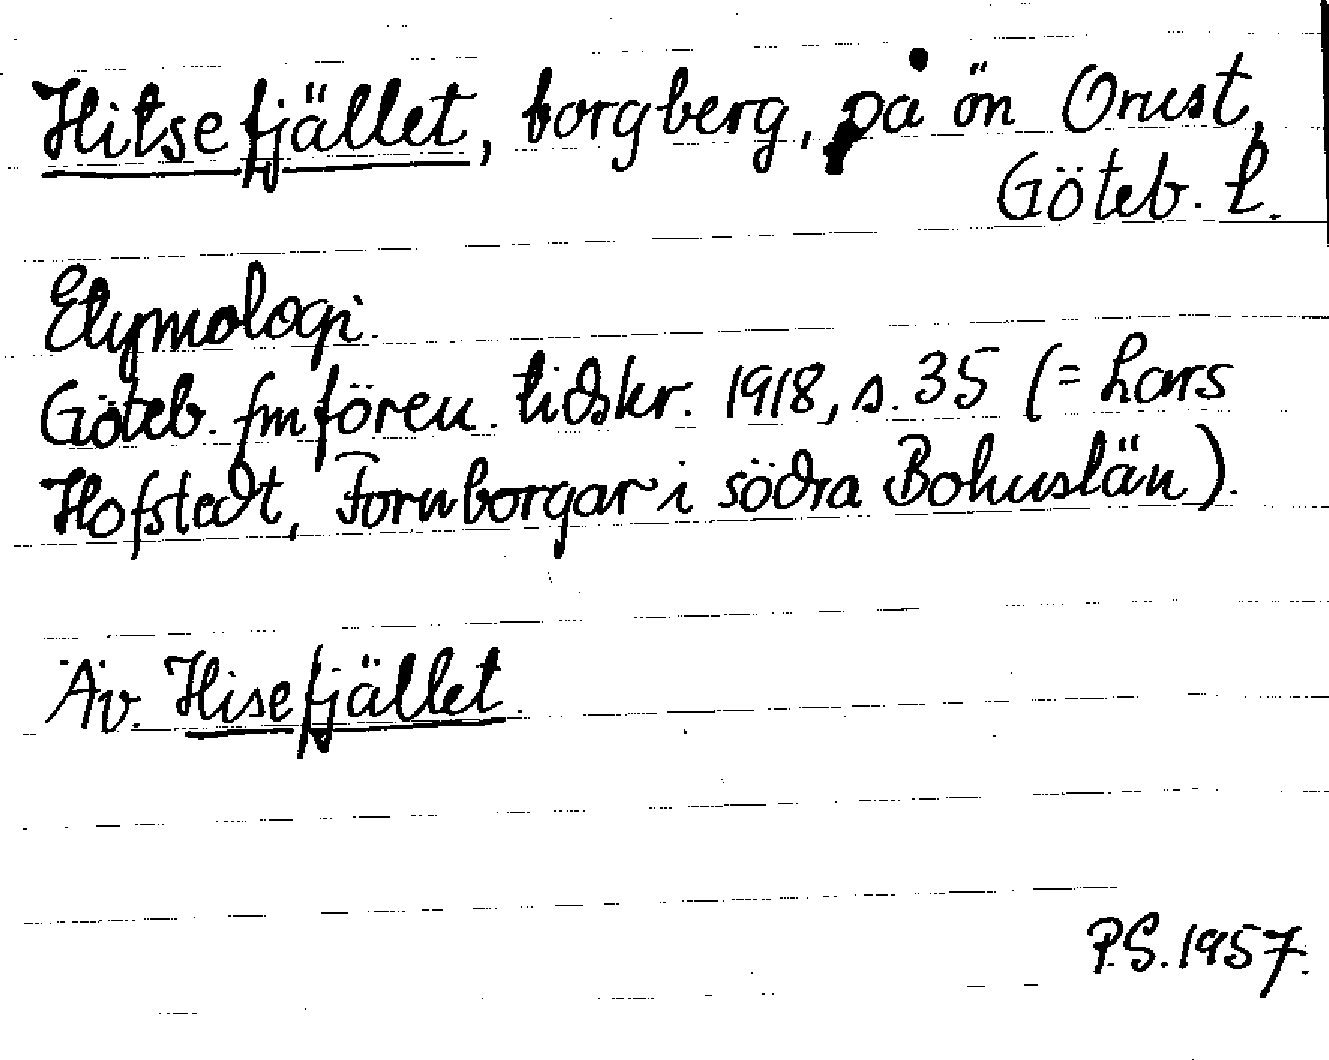 Hitsefjället, borgberg, på ön Orust,
Göteb. L.
Etymologi.
Göteb. fmfören. tidskr. 1918, s. 35 (= Lars
Hofstedt, Fornborgar i södra Bohuslän).
Äv. Hisefjället.
P.S. 1957.